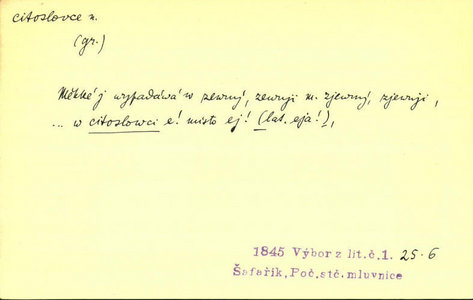 citoslovce n.
(gr.)
Měkké j wypadáwá w zewný, zewnji m. zjewný, zjewnji,
... w citoslowci e! místo ej! (lat. eja!),
1845 Výbor z lit.č.1. 25·6
Šafařík,Poč.stč.mluvnice